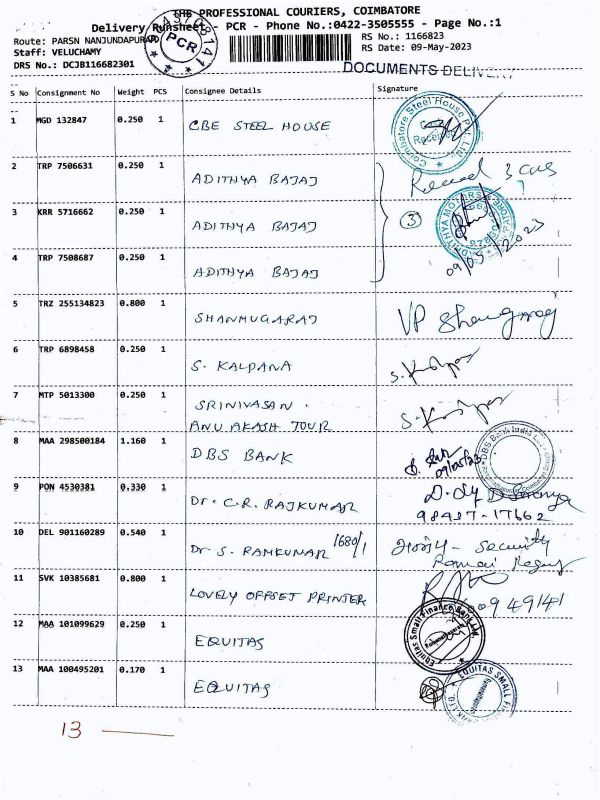 THE PROFESSIONAL COURIERS, COIMBATORE
Delivery Runsheet - PCR - Phone No.:0422-3505555 - Page No.:1
Route: PARSN NANJUNDAPURAM RS No.: 1166823
Staff: VELUCHAMY RS Date: 09-May-2023
DRS No.: DCJB116682301
PCR
DOCUMENTS DELIVERY
S No Consignment No Weight PCS Consignee Details Signature
1 MGD 132847 0.250 1 CBE STEEL HOUSE
Coimbatore Steel House Pvt. Ltd.
2 TRP 7506631 0.250 1 ADITHYA BAJAJ Received 3 cvs
3 KRR 5716662 0.250 1 ADITHYA BAJAJ 3
ADITHYA MOTORS
4 TRP 7508687 0.250 1 ADITHYA BAJAJ 09/05/2023
5 TRZ 255134823 0.800 1 SHANMUGARAJ VP
6 TRP 6898458 0.250 1 S. KALPANA
7 MTP 5013300 0.250 1 SRINIVASAN.
ANU AKASH TOUR
8 MAA 298500184 1.160 1 DBS BANK 09/05/23
DBS Bank India Ltd
9 PON 4530381 0.330 1 Dr. C.R. RAJKUMAR
98437-17662
10 DEL 901160289 0.540 1 Dr S. RAMKUMAR 1680/1 - Security
11 SVK 10385681 0.800 1 LOVELY OFFSET PRINTER
12 MAA 101099629 0.250 1 EQUITAS
Equitas Small Finance Bank Ltd
13 MAA 100495201 0.170 1 EQUITAS
EQUITAS SMALL
13